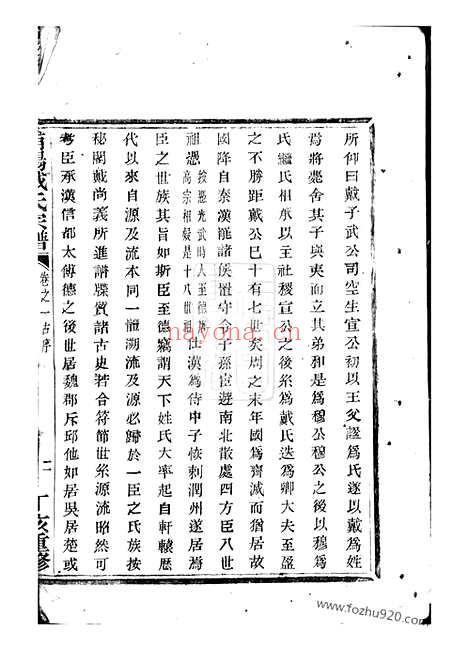 所仰曰戴子武公司空生宣公初以王父諡爲氏遂以戴爲姓
焉將薨舍其子與夷而立其弟和是爲穆公穆公之後以穆爲
氏繼氏相承以主社稷宣公之後糸爲戴氏迭爲卿大夫至盈
之不勝距戴公巳十有七世矣周之末年國爲齊滅而猶居故
國降自秦漢罷諸侯置守令子孫宦遊南北散處四方臣八世
祖憑 按憑光武時人至德 高宗相疑是十八世祖 仕漢爲侍中子恢刺潤州遂居焉
臣之世族其旨如斯臣至德竊謂天下姓氏大率起自軒轅歷
代以來自源及流本同一體溯流及源必歸於一臣之氏族按
秘閣戴尚義所進譜牒質諸古史若合符節世系源流昭然可
考臣承漢信都太傅德之後世居魏郡斥邱他如居吳居楚或
戴氏宗譜
卷之一古序
丁亥重修
nayona.cn
www.fozhu920.com